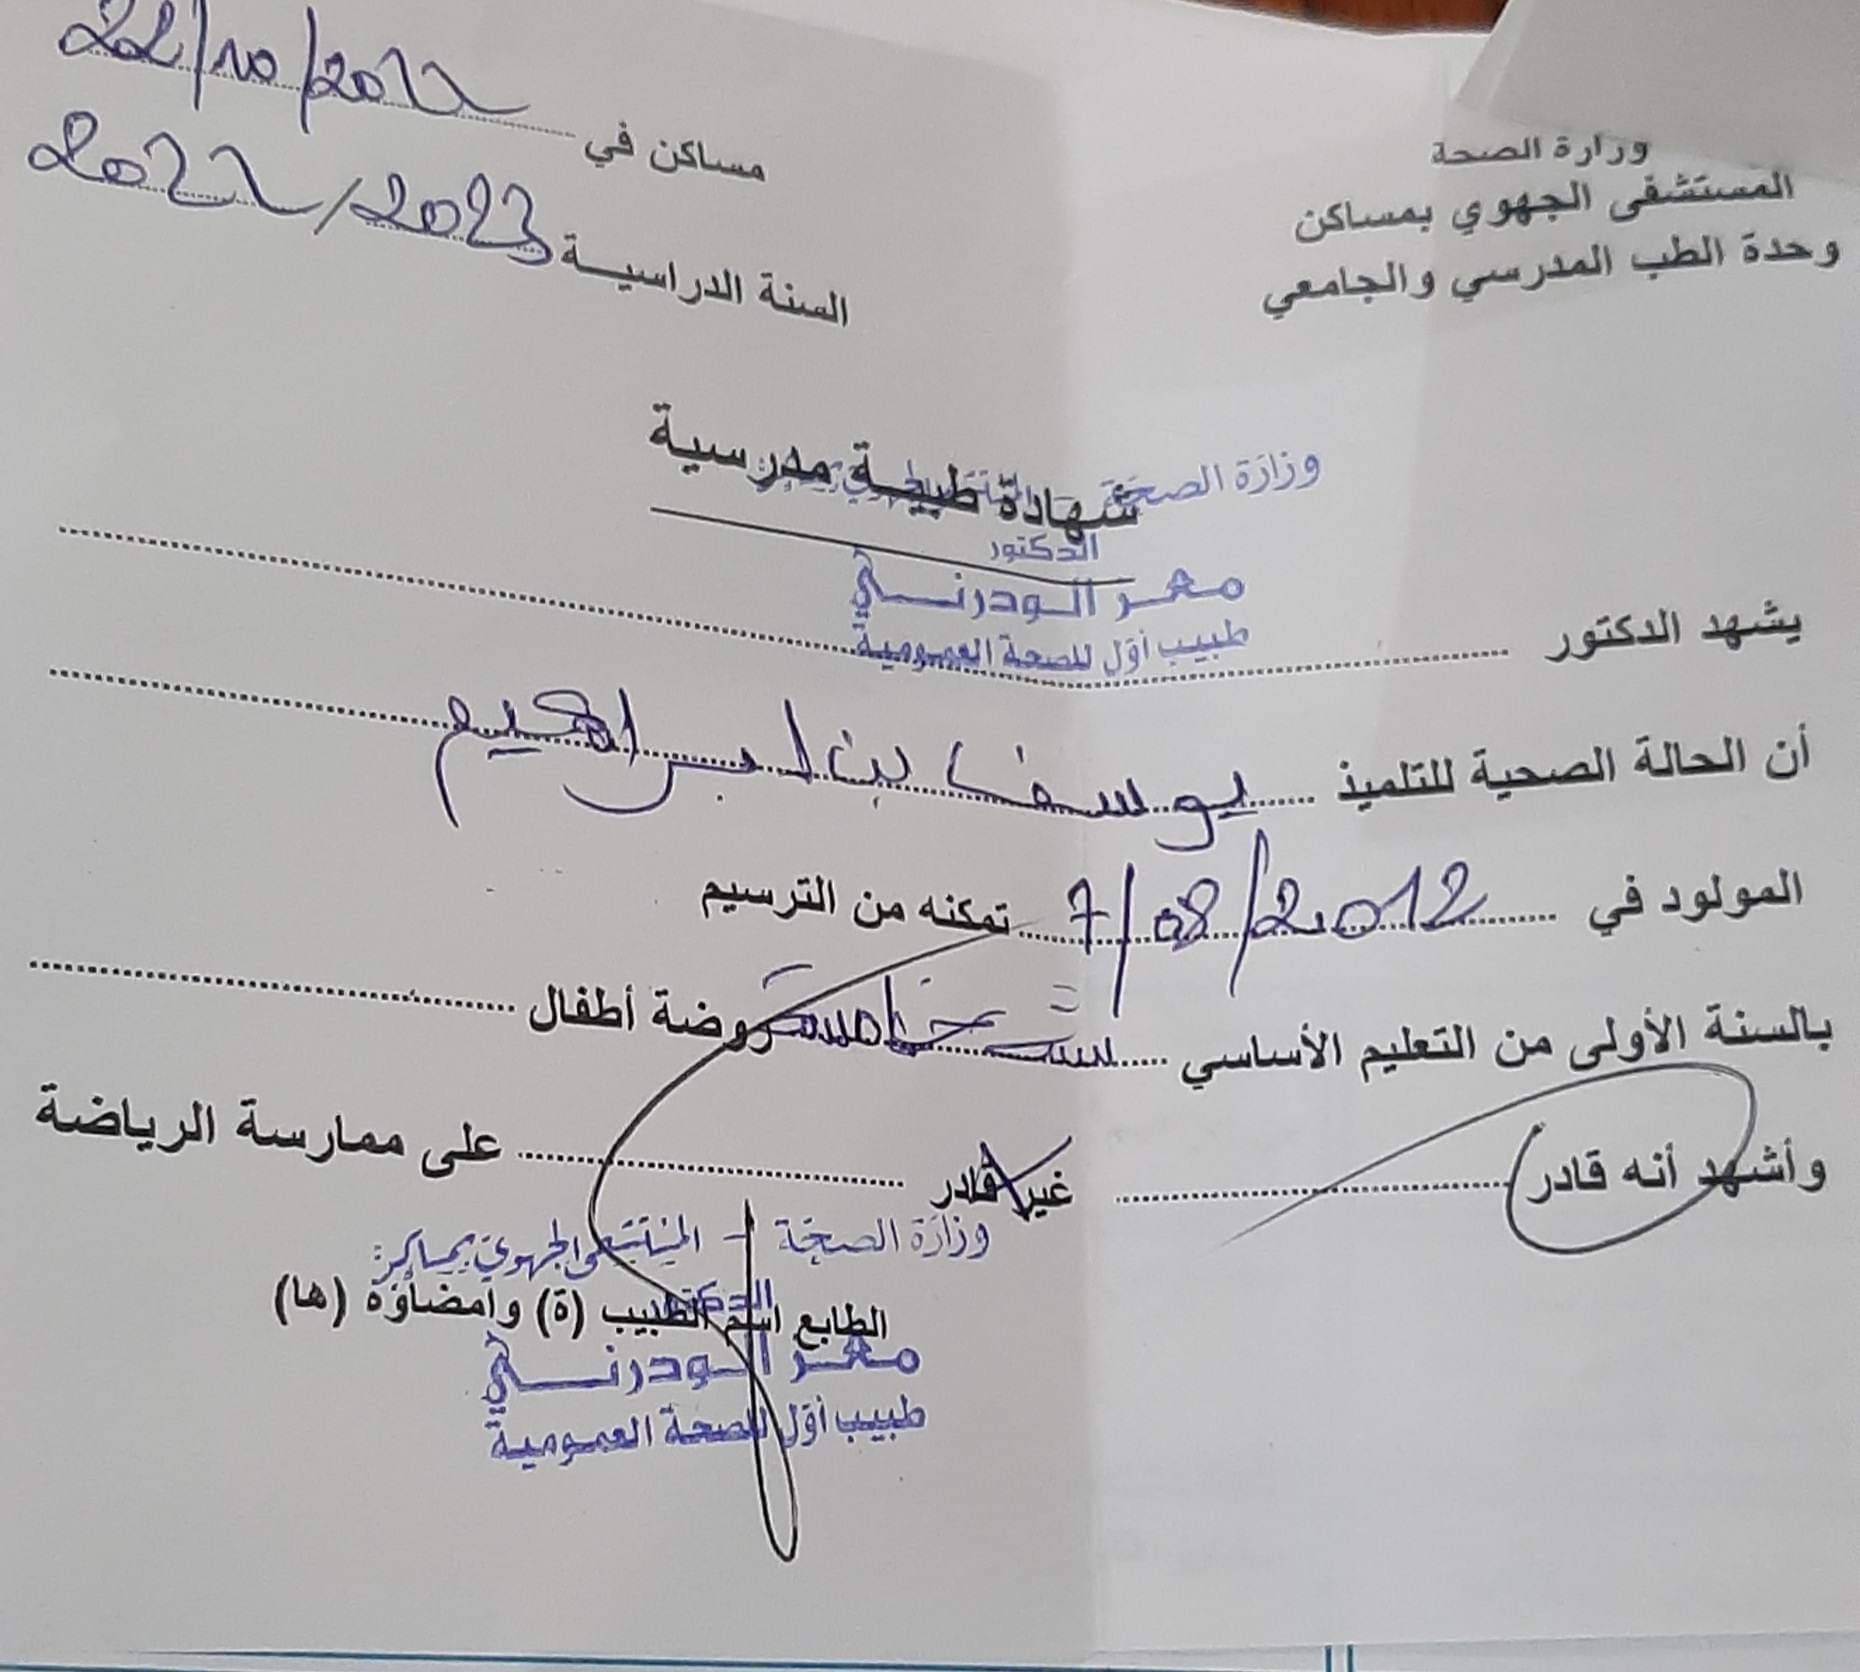 وزارة الصحة
المستشفى الجهوي بمساكن
وحدة الطب المدرسي والجامعي
مساكن في 22/10/2022
السنة الدراسية 2022/2023
شهادة طبية مدرسية
وزارة الصحة
الدكتور
معز الودرني
طبيب أول للصحة العمومية
يشهد الدكتور
أن الحالة الصحية للتلميذ يوسف بن ابراهيم
المولود في 7/08/2012 تمكنه من الترسيم
بالسنة الأولى من التعليم الأساسي سنة خامسة روضة أطفال
وأشهد أنه قادر غير قادر على ممارسة الرياضة
وزارة الصحة - المستشفى الجهوي بمساكن
الطابع اسم الطبيب (ة) وامضاؤه (ها)
الدكتور
معز الودرني
طبيب أول للصحة العمومية